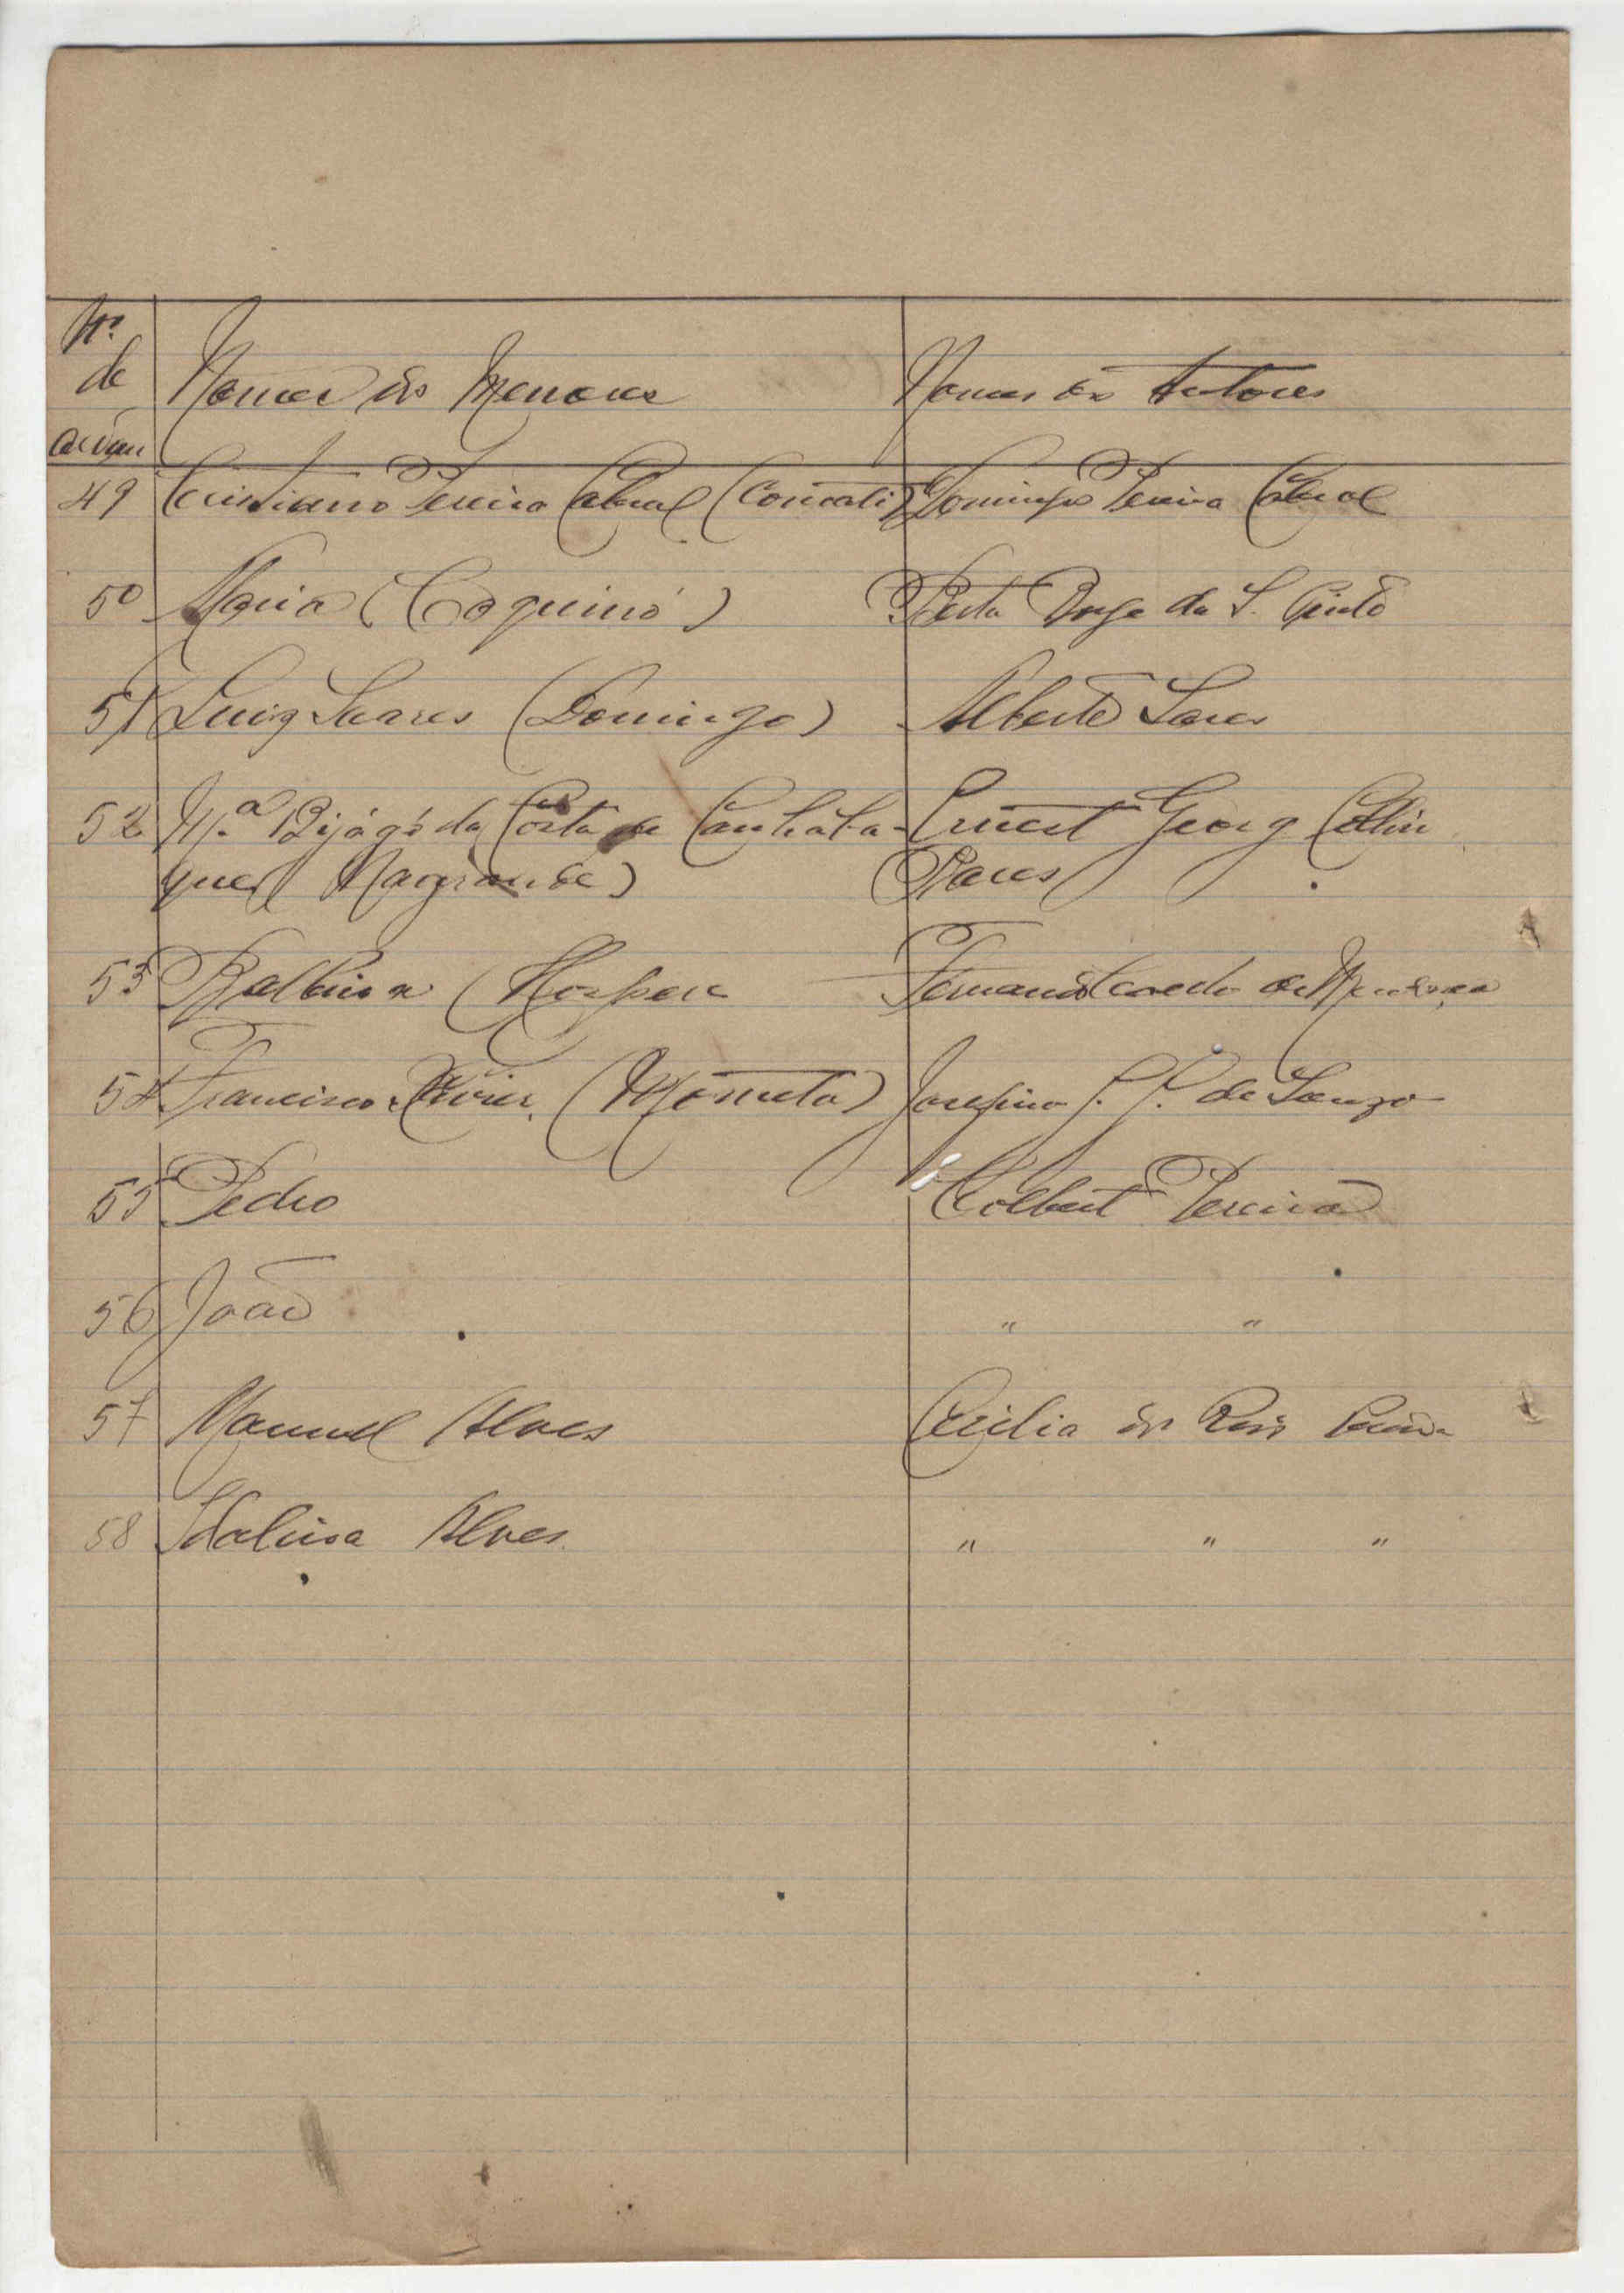 Nº
de
ordem
Nomes dos Menores
Nomes dos Tutores
49 Cristiano Pereira Cabral ( Domingos Pereira Cabral
50 Maria (Coquinió) Berta Borge da S. Pinto
51 Luiz Soares (Domingo) Alberto Soares
52 M.ª Bijágó da Costa de Canhaba- Ernest Georg Collin
que ( Nagrande)
53 Balbina ( Fernando de Mendonça
54 Francisco Xavier (Mómeta) Josefina de Souza
55 Pedro Colbert Pereira
56 João " "
57 Manuel Alves Cecilia dos Reis
58 Idalina Alves " " "